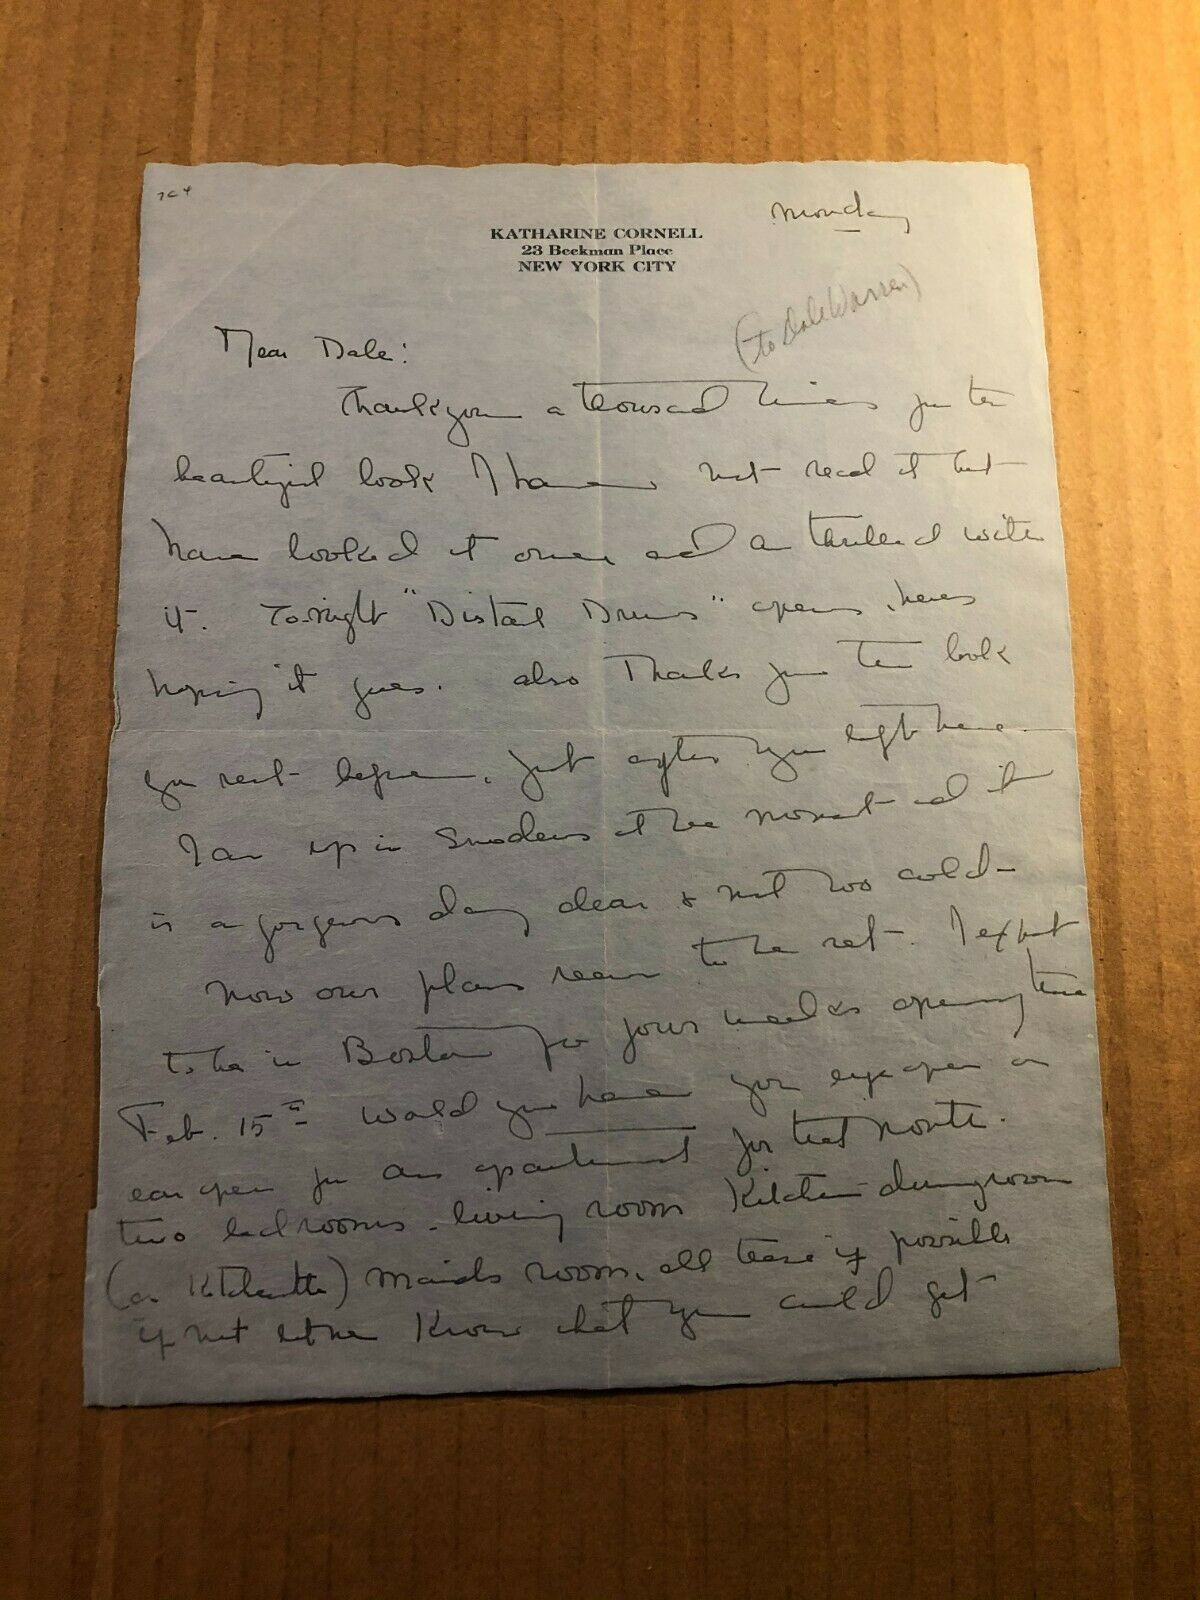 Monday
KATHARINE CORNELL
23 Beekman Place
NEW YORK CITY
(to Dale Warren)
Dear Dale:
Thank you a thousand times for the
beautiful book I have not read it but
have looked it over and am thrilled with
it. To-night "Distant Drums" opens, heres
hoping it goes. also Thanks for the book
you sent before, just after you left here.
I am up in Snedens at the moment and it
is a gorgeous day clear & not too cold -
Now our plans seem to be set. I expect
to be in Boston for four weeks opening there
Feb. 15th would you have your eye open or
ear open for an apartment for that month.
two bedrooms - living room Kitchen diningroom
(or Kitchenette) maids room, all these if possible
if not let me Know what you could get